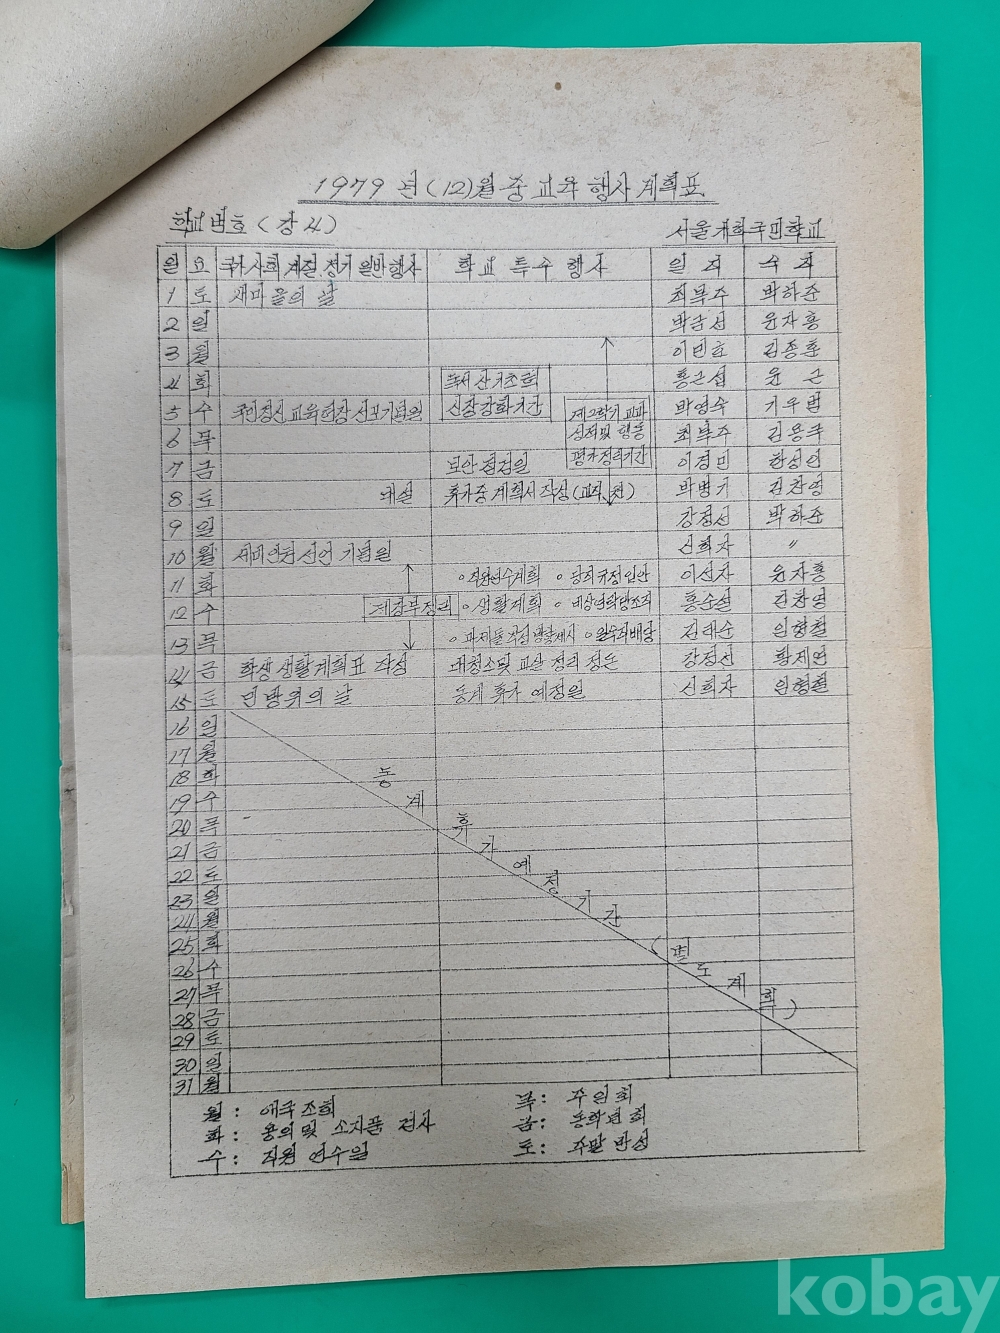 1979 년 (12)월 중 교육 행사 계획표
학교번호 (강 4)
서울개화국민학교
일 요 국가 사회 계절 정기 일반행사 학교 특수 행사 일직 숙직
1 토 새마을의 날 최복주 박하준
2 일 박금선 윤자흥
3 월 이민효 김종훈
4 화 독서 산기초학 홍순섭 윤 근
5 수 국민정신교육헌장 선포기념일 신장강화기간 제2학기 교과 박영수
6 목 성적 및 행동 최복주
7 금 보안점검일 평가정리기간 이경민 한성인
8 토 대설 휴가중 계획서 작성 (교직, 전) 박병기 김찬영
9 일 강정선 박하준
10 월 세계인권선언 기념일 신희자 〃
11 화 ∘직원연수계획 ∘당직규정입안 이선자 윤자흥
12 수 계장부정리 ∘생활계획 ∘비상연락망조직 홍순섭 김찬영
13 목 ∘과제물 작성 방향제시 ∘일숙직배당 김태순 임형철
14 금 학생 생활계획표 작성 대청소 및 교실 정리 정돈 강정선 황제연
15 토 민방위의 날 동계 휴가 예정일 신희자 임형철
16 일
17 월
18 화
19 수
20 목
21 금
22 토
23 일
24 월
25 화
26 수
27 목
28 금
29 토
30 일
31 월
동계 휴가 예정 기간 (별도 계획)
월: 애국조회
화: 용의 및 소지품 검사
수: 직원 연수일
목: 주임회
금: 동학년회
토: 주말 반성
kobay